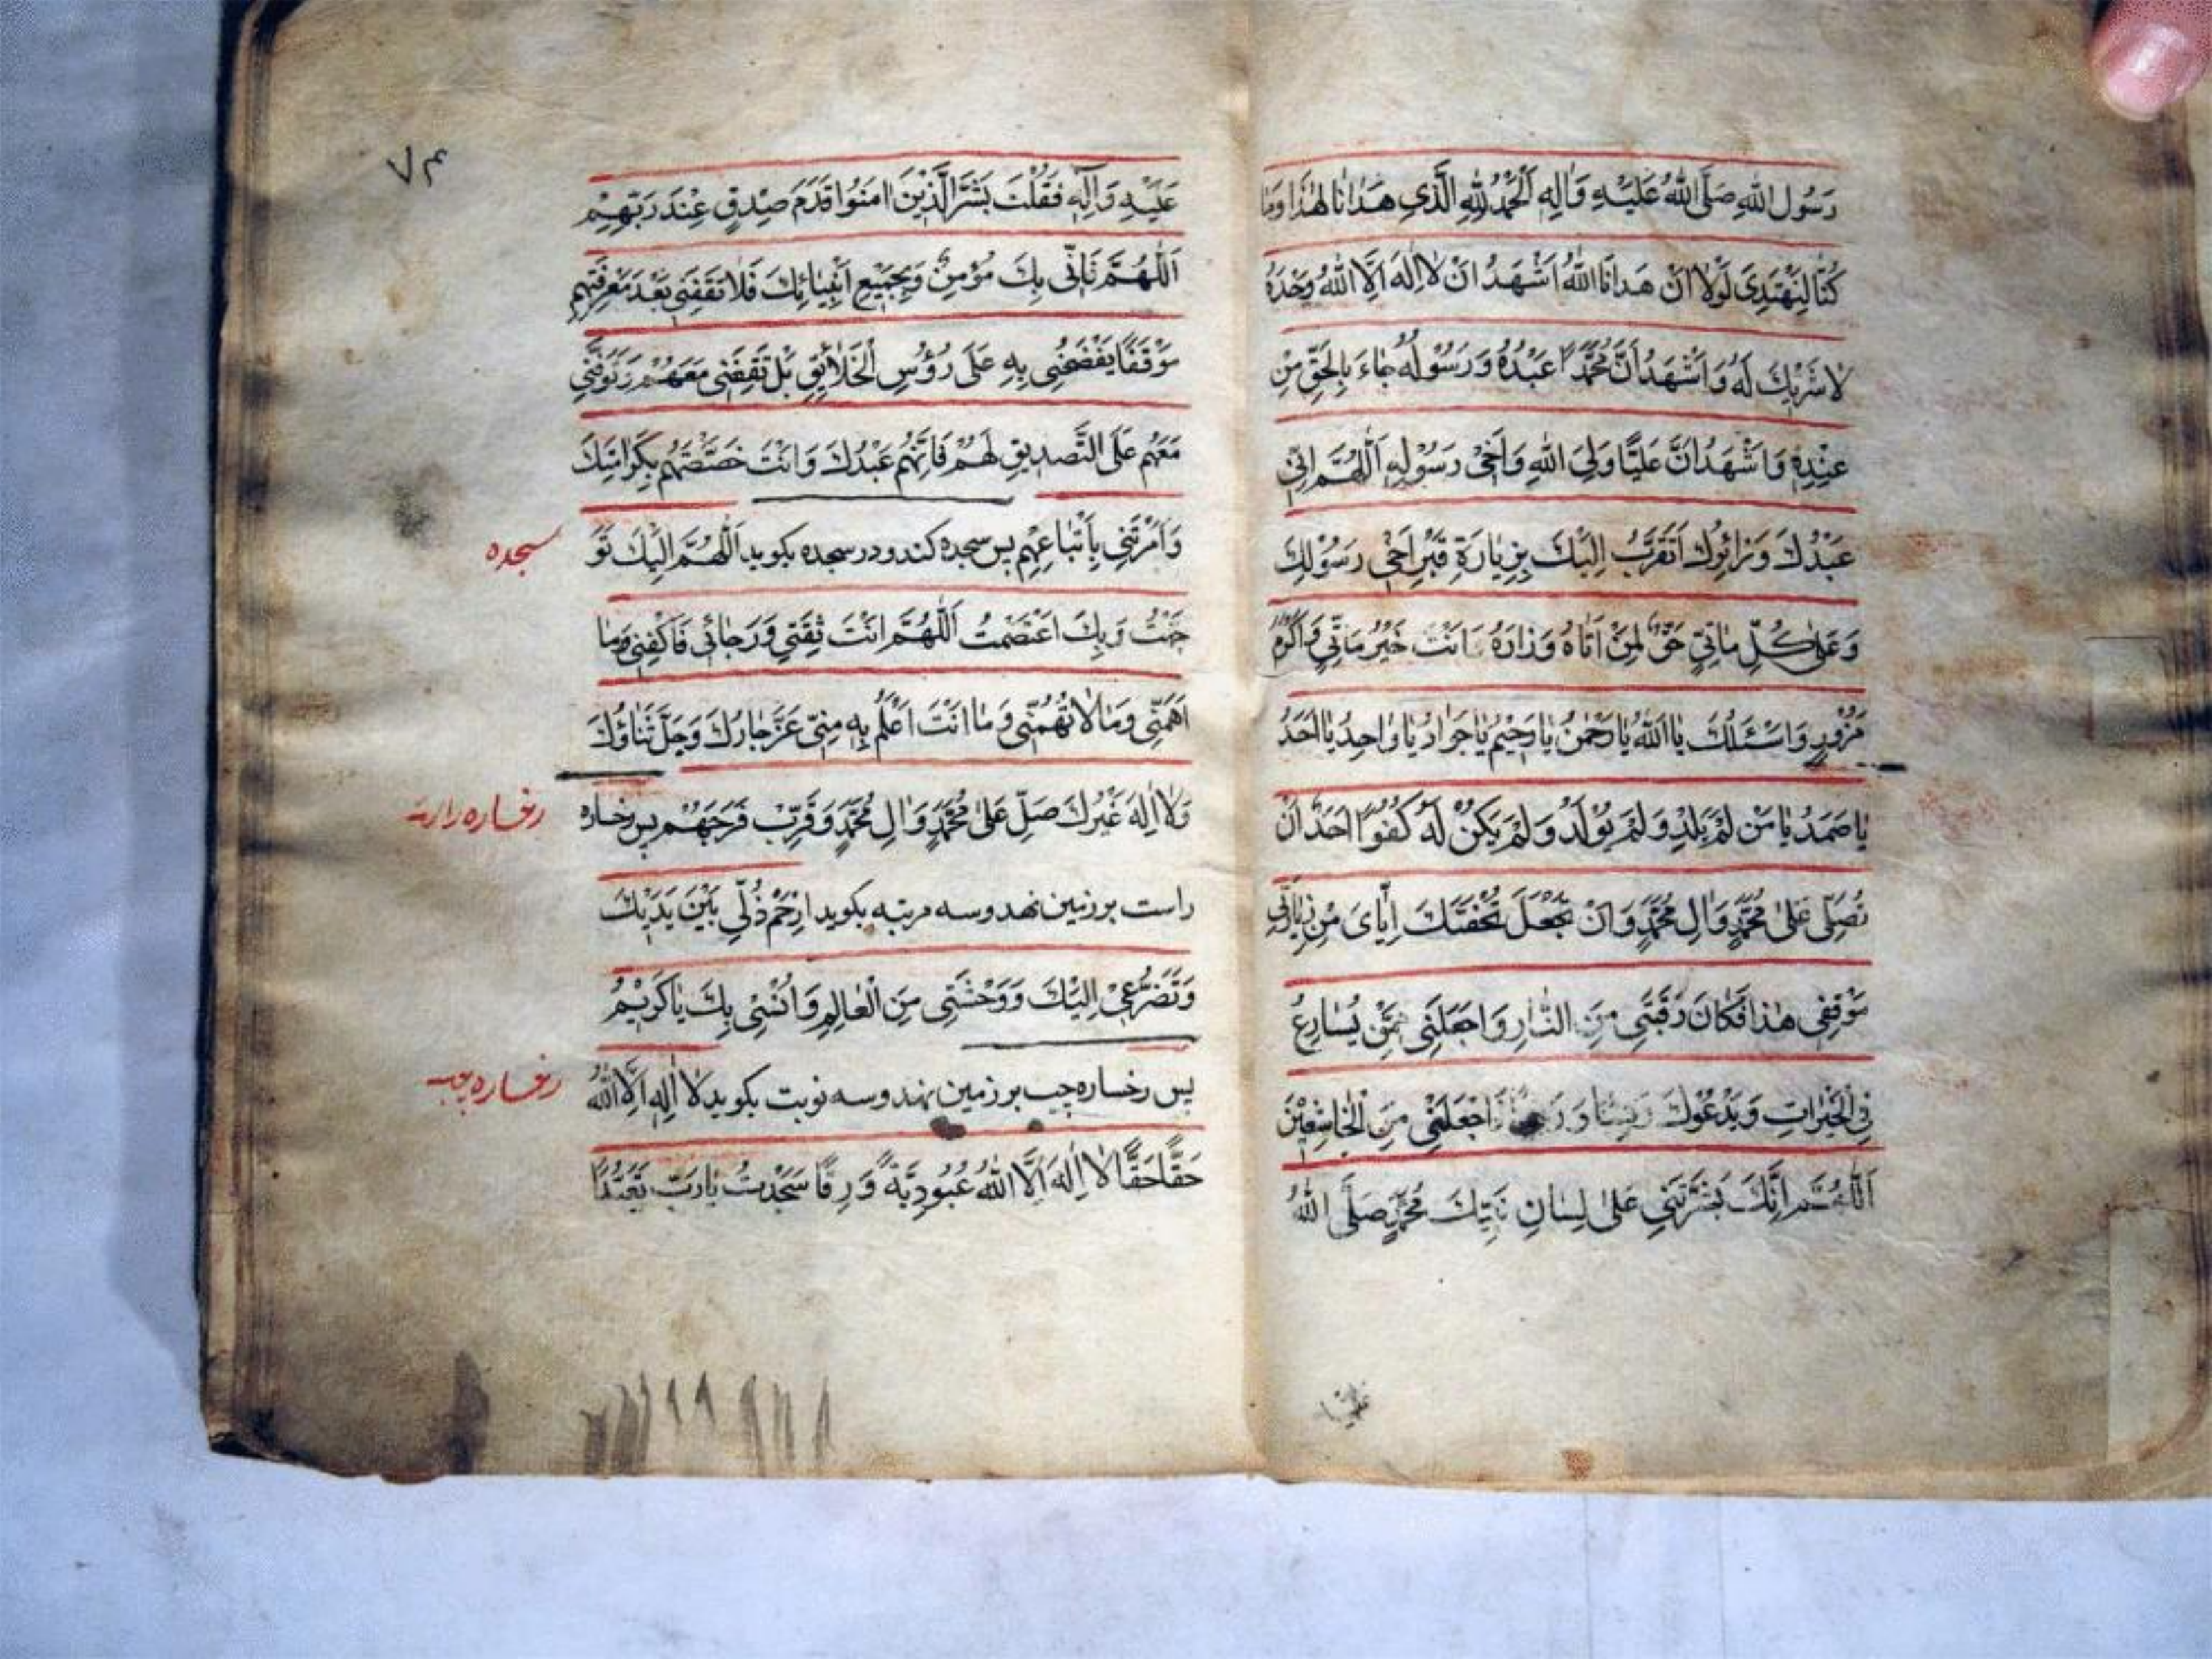 رَسُولِ اللهِ صَلَّى اللهُ عَلَيْهِ وَالِهِ اَلْحَمْدُ لِلّٰهِ الَّذِي هَدَانَا لِهٰذَا وَمَا
كُنَّا لِنَهْتَدِيَ لَوْلَا اَنْ هَدَانَا اللهُ اَشْهَدُ اَنْ لَا اِلٰهَ اِلَّا اللهُ وَحْدَهُ
لَا شَرِيكَ لَهُ وَاَشْهَدُ اَنَّ مُحَمَّدًا عَبْدُهُ وَرَسُولُهُ جَاءَ بِالْحَقِّ مِنْ
عِنْدِهِ وَاَشْهَدُ اَنَّ عَلِيًّا وَلِيُّ اللهِ وَاَخِي رَسُولِهِ اَللّٰهُمَّ اِنِّي
عَبْدُكَ وَزَائِرُكَ اَتَقَرَّبُ اِلَيْكَ بِزِيَارَةِ قَبْرِ اَخِي رَسُولِكَ
وَعَلٰى كُلِّ مَاتِيٍّ حَقٌّ لِمَنْ اَتَاهُ وَزَارَهُ وَاَنْتَ خَيْرُ مَاتِيٍّ وَاَكْرَمُ
مَزُورٍ وَاَسْئَلُكَ يَا اَللهُ يَا رَحْمٰنُ يَا رَحِيمُ يَا جَوَادُ يَا وَاحِدُ يَا اَحَدُ
يَا صَمَدُ يَا مَنْ لَمْ يَلِدْ وَلَمْ يُولَدْ وَلَمْ يَكُنْ لَهُ كُفُوًا اَحَدٌ اَنْ
تُصَلِّيَ عَلٰى مُحَمَّدٍ وَالِ مُحَمَّدٍ وَاَنْ تَجْعَلَ تُحْفَتَكَ اِيَّايَ مِنْ زِيَارَتِي
مَوْقِفِي هٰذَا فَكَاكَ رَقَبَتِي مِنَ النَّارِ وَاجْعَلْنِي مِمَّنْ يُسَارِعُ
فِي الْخَيْرَاتِ وَيَدْعُوكَ وَاجْعَلْنِي مِنَ الْخَاشِعِينَ
اَللّٰهُمَّ اِنَّكَ بَشَّرْتَنِي عَلٰى لِسَانِ نَبِيِّكَ مُحَمَّدٍ صَلَّى اللهُ
عليه
٧٤
عَلَيْهِ وَآلِهِ فَقُلْتَ بَشِّرِ الَّذِينَ امَنُوا قَدَمَ صِدْقٍ عِنْدَ رَبِّهِمْ
اَللّٰهُمَّ فَاِنِّي بِكَ مُؤْمِنٌ وَبِجَمِيعِ اَنْبِيَائِكَ فَلَا تَقِفْنِي بَعْدَ مَعْرِفَتِهِمْ
مَوْقِفًا يَفْضَحُنِي بِهِ عَلٰى رُؤُسِ الْخَلَائِقِ بَلْ تَقِفْنِي مَعَهُمْ وَتَوَفَّنِي
مَعَهُمْ عَلَى التَّصْدِيقِ لَهُمْ فَاِنَّهُمْ عَبْدُكَ وَاَنْتَ خَصَّصْتَهُمْ بِكَرَامَتِكَ
وَاَمَرْتَنِي بِاَتْبَاعِهِمْ پس سجده کند و در سجده بکوید اَللّٰهُمَّ اِلَيْكَ تَوَ
سجده
جَّهْتُ وَبِكَ اعْتَصَمْتُ اَللّٰهُمَّ اَنْتَ ثِقَتِي وَرَجَائِي فَاكْفِنِي وَمَا
اَهَمَّنِي وَمَا لَا تُهِمُّنِي وَمَا اَنْتَ اَعْلَمُ بِهِ مِنِّي عَزَّ جَارُكَ وَجَلَّ ثَنَاؤُكَ
وَلَا اِلٰهَ غَيْرُكَ صَلِّ عَلٰى مُحَمَّدٍ وَالِ مُحَمَّدٍ وَقَرِّبْ فَرَجَهُمْ پس رخساره
رخساره راست
راست بر زمین نهد و سه مرتبه بکوید اِرْحَمْ ذُلِّي بَيْنَ يَدَيْكَ
وَتَضَرُّعِي اِلَيْكَ وَوَحْشَتِي مِنَ الْعَالَمِ وَاُنْسِي بِكَ يَا كَرِيمُ
پس رخساره چپ بر زمین نهد و سه نوبت بکوید لَا اِلٰهَ اِلَّا اللهُ
رخساره چپ
حَقًّا حَقًّا لَا اِلٰهَ اِلَّا اللهُ عُبُودِيَّةً وَرِقًّا سَجَدْتُ يَا رَبِّ تَعَبُّدًا